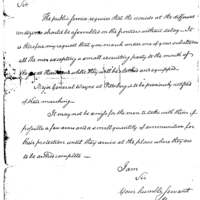 Sir
The public service requires that the recruits at the different
rendezvous should be assembled on the frontiers without delay. It
is therefore my request that you march under one of your subalterns
all the men excepting a small recruiting party to the mouth of
where they will be clothed and equipped.
Major General Wayne at Pittsburg is to be previously notified
of their marching.
It may not be unsafe for the men to take with them if
possible a few arms and a small quantity of ammunition for
their protection until they arrive at the place where they are
to be armed complete —
I am
Sir
Your humble servant